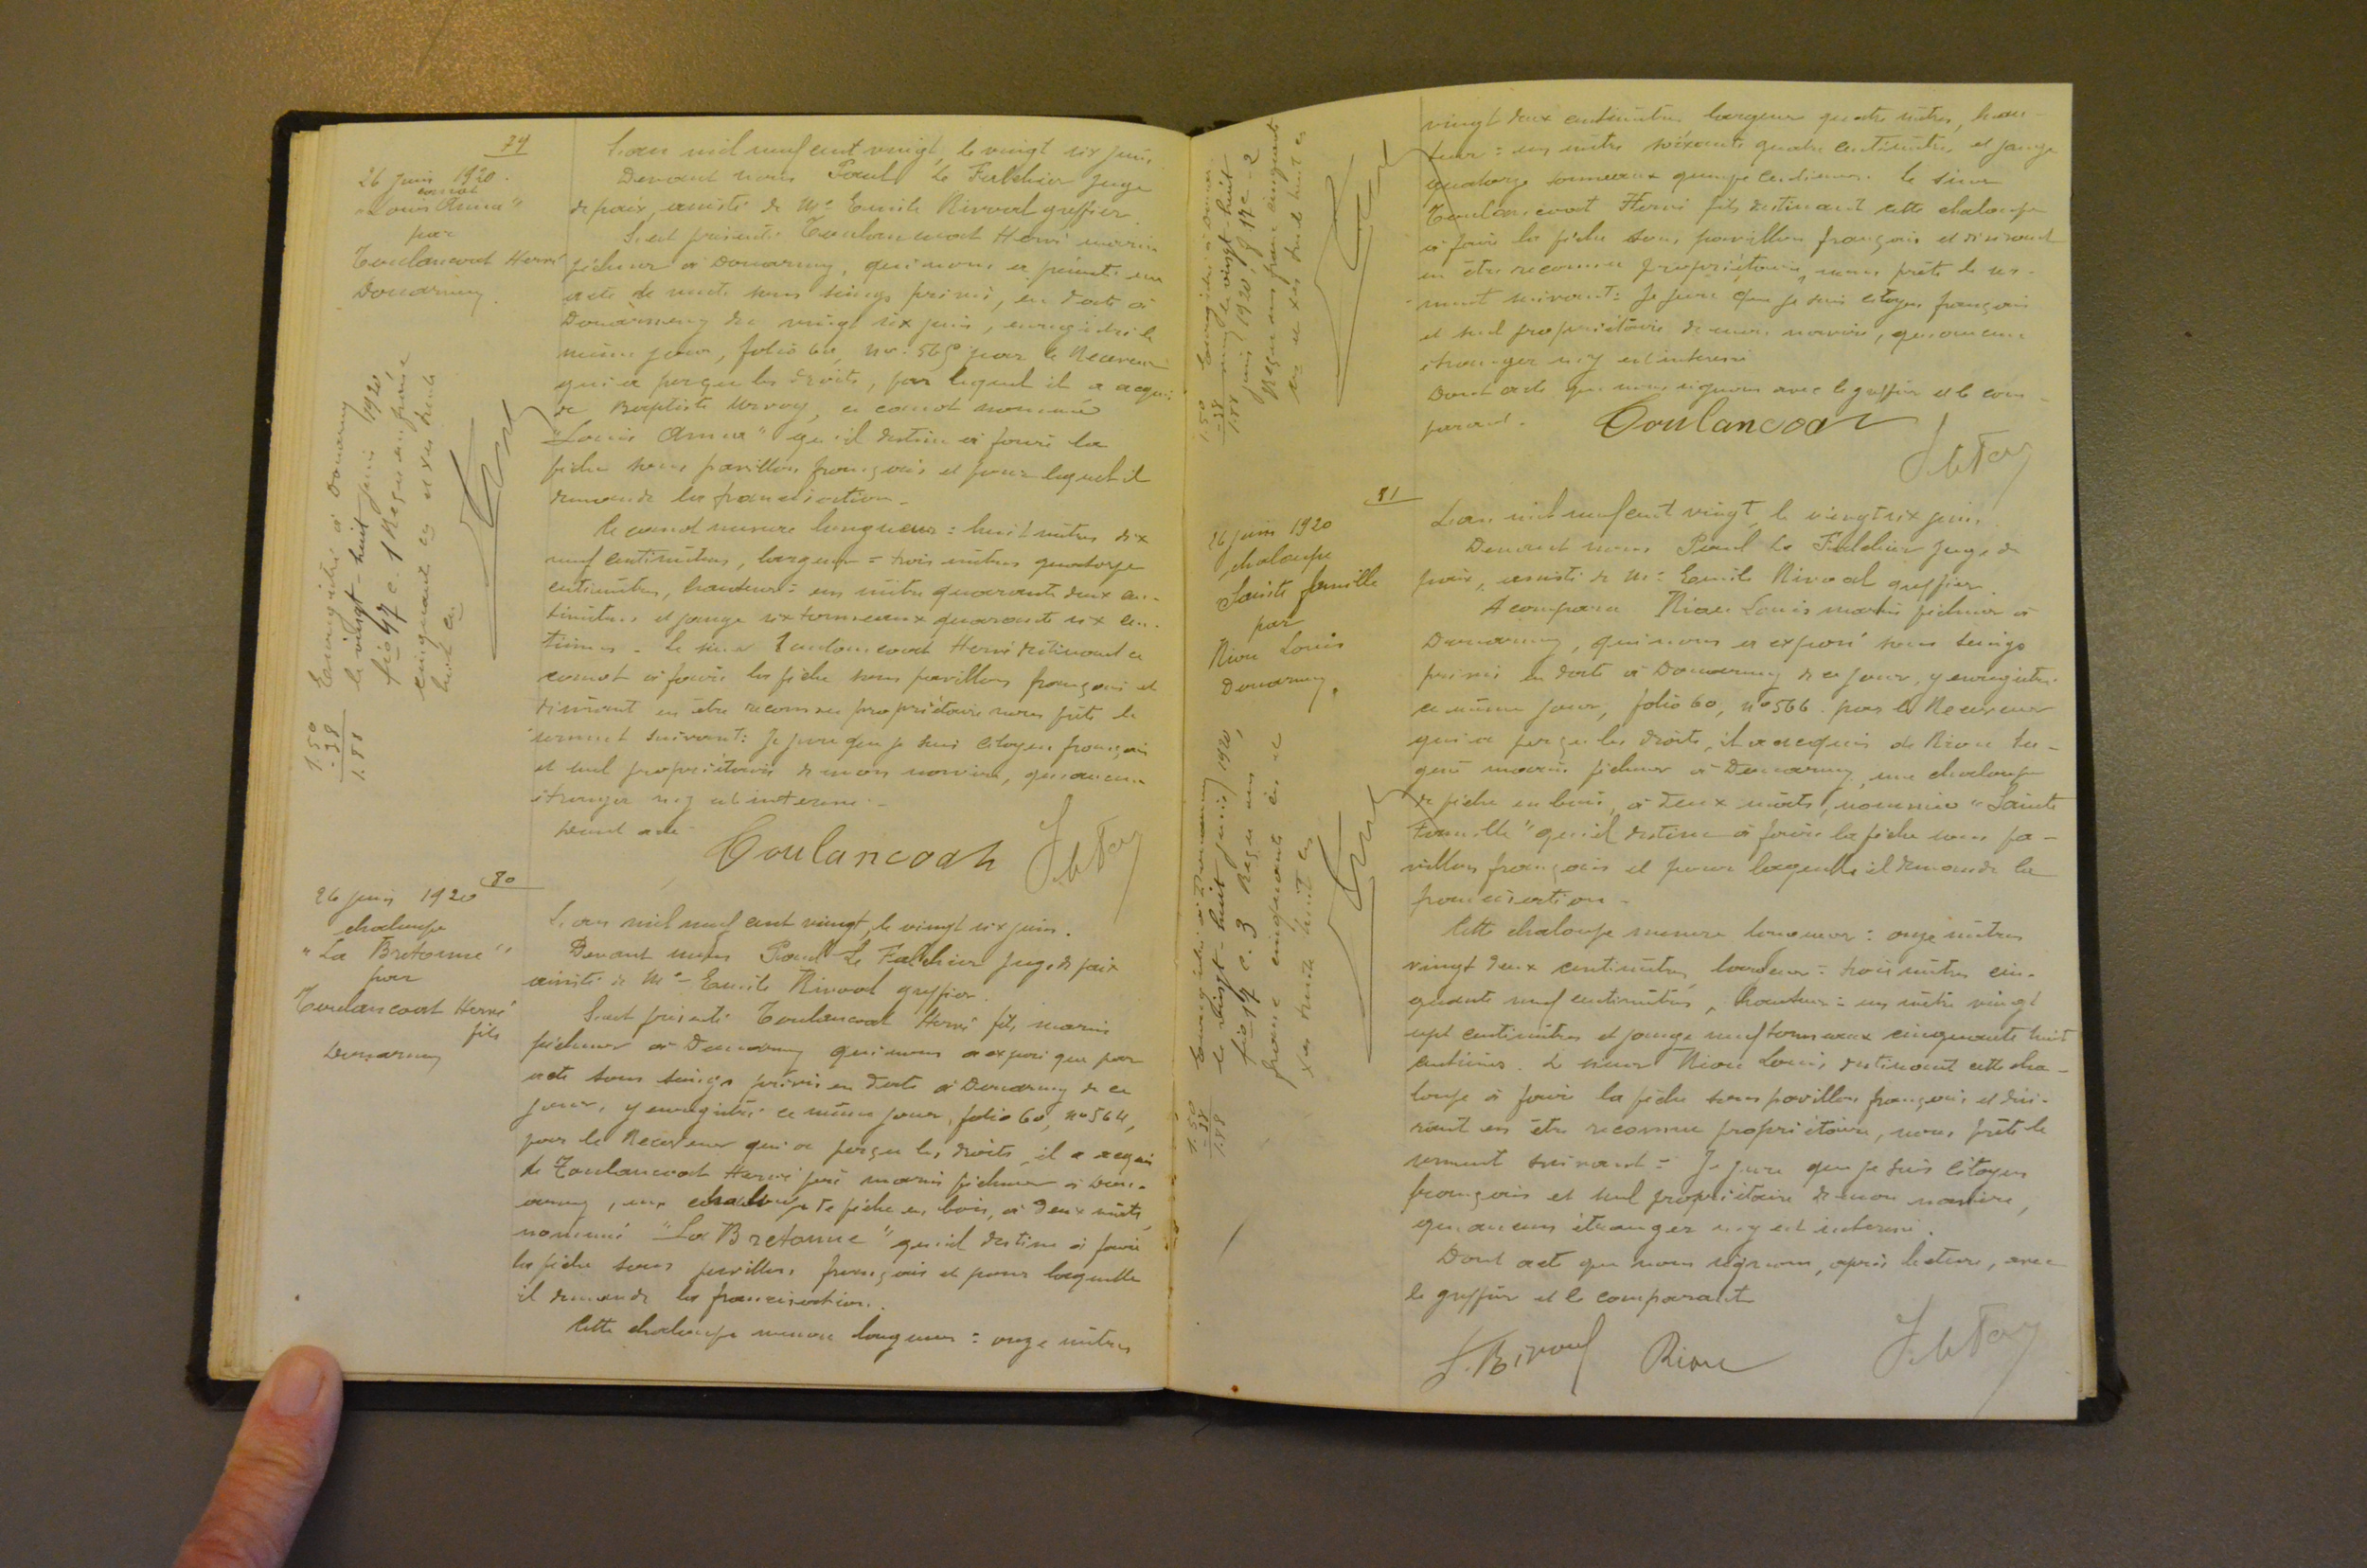 79
26 juin 1920.
canot
"Louis Anna"
par
Toulancoat Hervé
Douarnenez.
L'an mil neuf cent vingt, le vingt six juin,
Devant nous Paul Le Fulchier Juge
de paix, assisté de Me Emile Rivoal greffier.
S'est présenté Toulancoat Hervé marin
pêcheur à Douarnenez, qui nous a présenté un
acte de vente sous seings privés, en date à
Douarnenez du vingt six juin, enregistré le
même jour, folio 60, no 565 par le Receveur
qui a perçu les droits, par lequel il a acquis
de Baptiste Urvoy, un canot nommé
"Louis Anna" qu'il destine à faire la
pêche sous pavillon français et pour lequel il
demande la francisation.
Ce canot mesure longueur : huit mètres dix
neuf centimètres, largeur = trois mètres quatorze
centimètres, hauteur : un mètre quarante deux cen-
timètres et jauge six tonneaux quarante six cen-
tièmes. Le sieur Toulancoat Hervé destinant ce
canot à faire la pêche sous pavillon français et
désirant en être reconnu propriétaire nous prête le
serment suivant : Je jure que je suis citoyen français
et seul propriétaire de mon navire, qu'aucun
étranger n'y est intéressé.
Dont acte
Toulancoat
Enregistré à Douarnenez
le vingt-huit juin 1920,
fio 97 c. 1 Reçu un franc
cinquante ces et xes trente
huit ces
1.50
-38
1.88
80
26 juin 1920
chaloupe
"La Bretonne"
par
Toulancoat Hervé
fils
Douarnenez
L'an mil neuf cent vingt, le vingt six juin.
Devant nous Paul Le Fulchier Juge de paix
assisté de Me Emile Rivoal greffier.
S'est présenté Toulancoat Hervé fils, marin
pêcheur à Douarnenez qui nous a exposé que par
acte sous seings privés en date à Douarnenez de ce
jour, y enregistré ce même jour, folio 60, no 564,
par le Receveur qui a perçu les droits, il a acquis
de Toulancoat Hervé père marin pêcheur à Douar-
nenez, une chaloupe de pêche en bois, à deux mâts,
nommé "La Bretonne" qu'il destine à faire
la pêche sous pavillon français et pour laquelle
il demande la francisation.
Cette chaloupe mesure longueur : onze mètres
vingt deux centimètres largeur quatre mètres, hau-
teur : un mètre soixante quatre centimètres et jauge
quatorze tonneaux quinze centièmes. Le sieur
Toulancoat Hervé fils destinant cette chaloupe
à faire la pêche sous pavillon français et désirant
en être reconnu propriétaire, nous prête le ser-
ment suivant : Je jure que je suis citoyen français
et seul propriétaire de mon navire, qu'aucun
étranger n'y est intéressé
Dont acte que nous signons avec le greffier et le com-
parant.
Toulancoat
Enregistré à Douar-
nenez le vingt-huit
juin 1920, f 97 c. 2
Reçu un franc cinquante
ces et xes trente huit ces
1.50
-38
1.88
81
26 juin 1920
chaloupe
Sainte famille
par
Riou Louis
Douarnenez.
L'an mil neuf cent vingt, le vingt six juin.
Devant nous Paul Le Fulchier Juge de
paix, assisté de Me Emile Rivoal greffier.
A comparu Riou Louis marin pêcheur à
Douarnenez, qui nous a exposé sous seings
privés en date à Douarnenez de ce jour, y enregistré
ce même jour, folio 60, no 566 par le Receveur
qui a perçu les droits, il a acquis de Riou Eu-
gène marin pêcheur à Douarnenez, une chaloupe
de pêche en bois, à deux mâts, nommée "Sainte
Famille" qu'il destine à faire la pêche sous pa-
villon français et pour laquelle il demande la
francisation.
Cette chaloupe mesure longueur : onze mètres
vingt deux centimètres, largeur : trois mètres cin-
quante neuf centimètres, hauteur : un mètre vingt
sept centimètres et jauge neuf tonneaux cinquante huit
centièmes. Le sieur Riou Louis, destinant cette cha-
loupe à faire la pêche sous pavillon français et dési-
rant en être reconnu propriétaire, nous prête le
serment suivant : Je jure que je suis citoyen
français et seul propriétaire de mon navire,
qu'aucun étranger n'y est intéressé.
Dont acte que nous signons, après lecture, avec
le greffier et le comparant
E. Rivoal Riou
Enregistré à Douarnenez
le vingt-huit juin 1920,
fio 97 c. 3 Reçu un
franc cinquante ces et
xes trente huit ces
1.50
-38
1.88